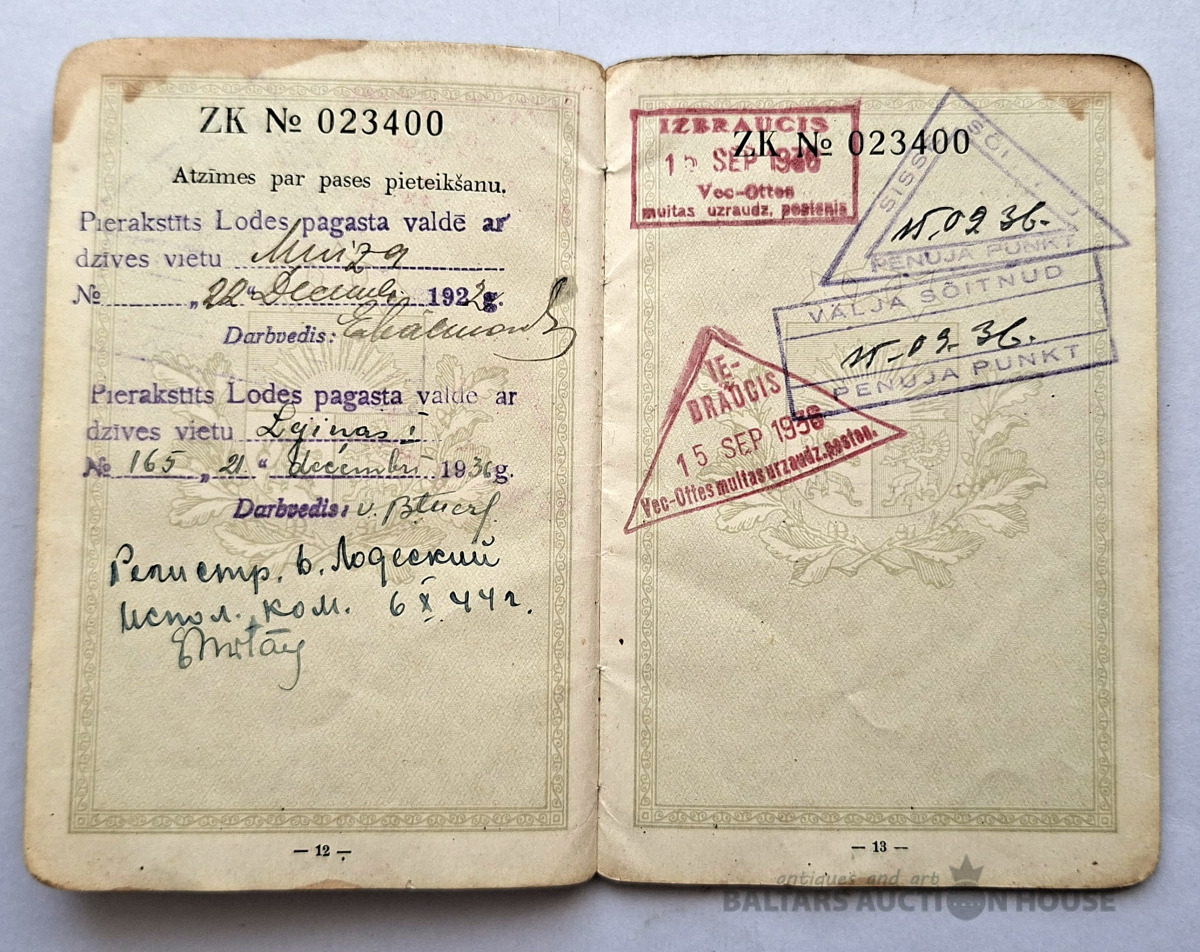 ZK № 023400
Atzīmes par pases pieteikšanu.
Pierakstīts Lodes pagasta valdē ar
dzīves vietu Muiza
№ „22“ Decembri 1932g.
Darbvedis:
Pierakstīts Lodes pagasta valdē ar
dzīves vietu
№ 165 „21“ decembri 1936g.
Darbvedis:
Регистр. в. Лодеский
испол. ком. 6 X 44 г.
— 12 —
IZBRAUCIS
ZK № 023400
15 SEP 1936
Vec-Ottes
muitas uzraudz. postenis
SISSE SÕITNUD
15.09.36.
PENUJA PUNKT
VÄLJA SÕITNUD
15-09-36.
PENUJA PUNKT
IE-
BRAUCIS
15 SEP 1936
Vec-Ottes muitas uzraudz. posten.
— 13 —
antiques and art
BALTARS AUCTION HOUSE